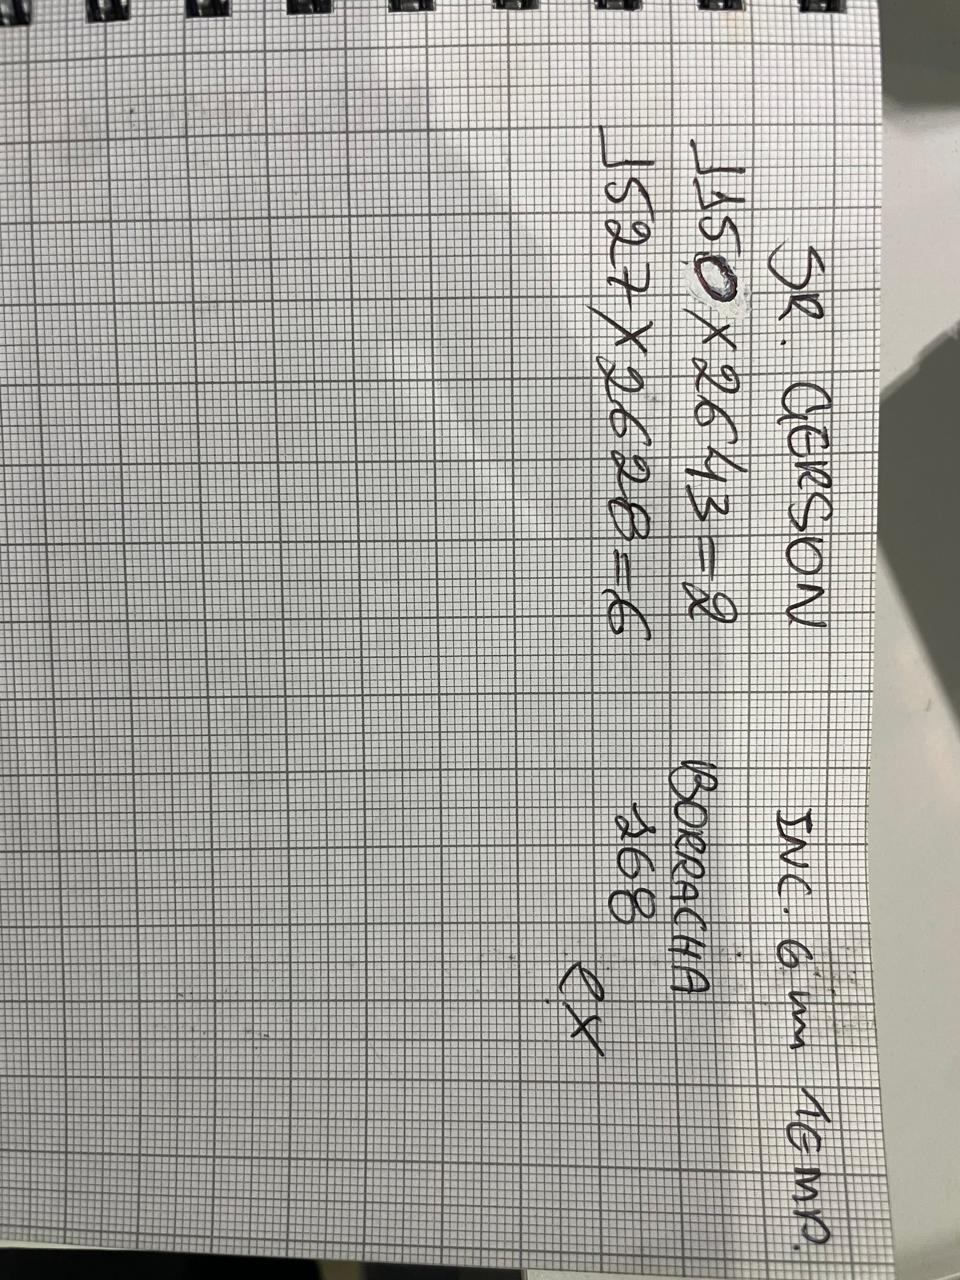 SR. GERSON INC. 6 mm TEMP.
1150 x 2643 = 2 BORRACHA
1527 x 2628 = 6 268
ex